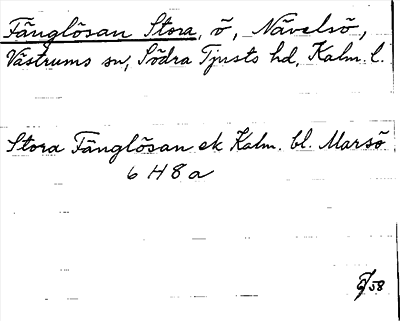 Fånglösan Stora, ö, Nävelsö,
Västrums sn, Södra Tjusts hd, Kalm. l.
Stora Fånglösan ek Kalm. bl. Marsö
6 H 8 a
58